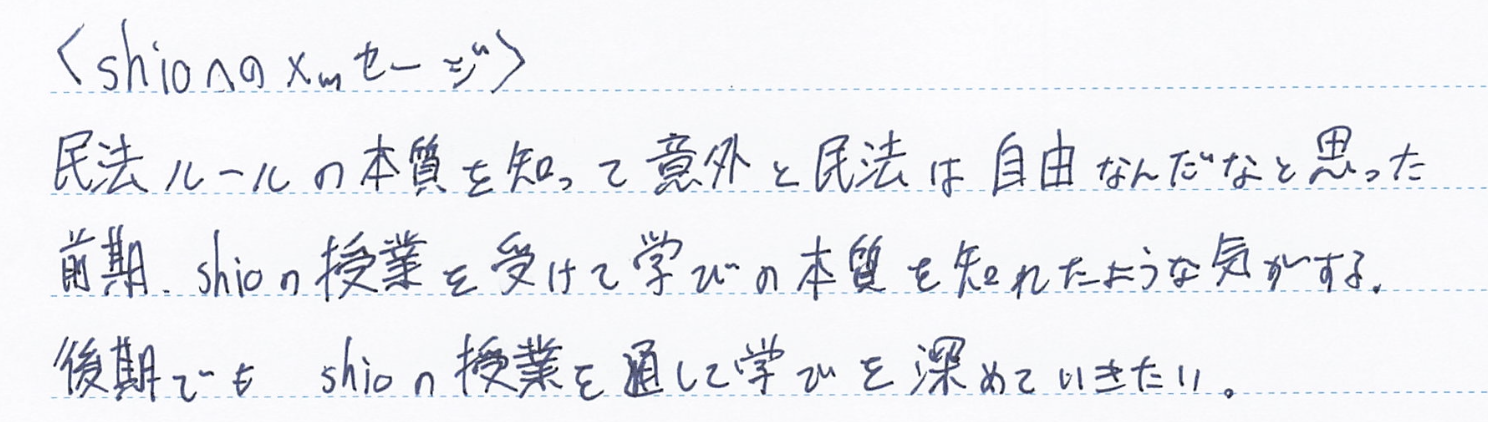 〈shioへのメッセージ〉
民法ルールの本質を知って意外と民法は自由なんだなと思った
前期、shioの授業を受けて学びの本質を知れたような気がする。
後期でも shioの授業を通して学びを深めていきたい。